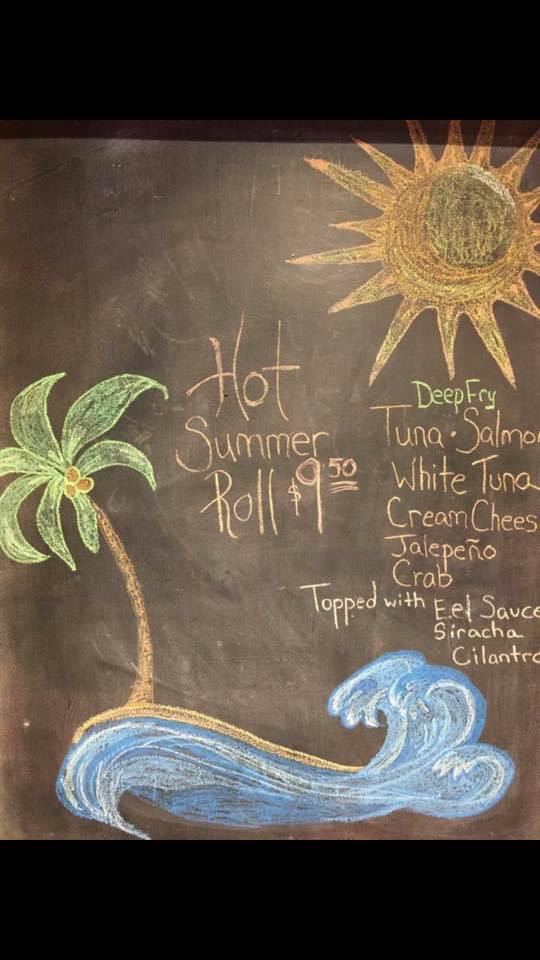 Hot
Summer
Roll $9.50
Deep Fry
Tuna · Salmon
White Tuna
Cream Chees
Jalepeño
Crab
Topped with Eel Sauce
Siracha
Cilantro